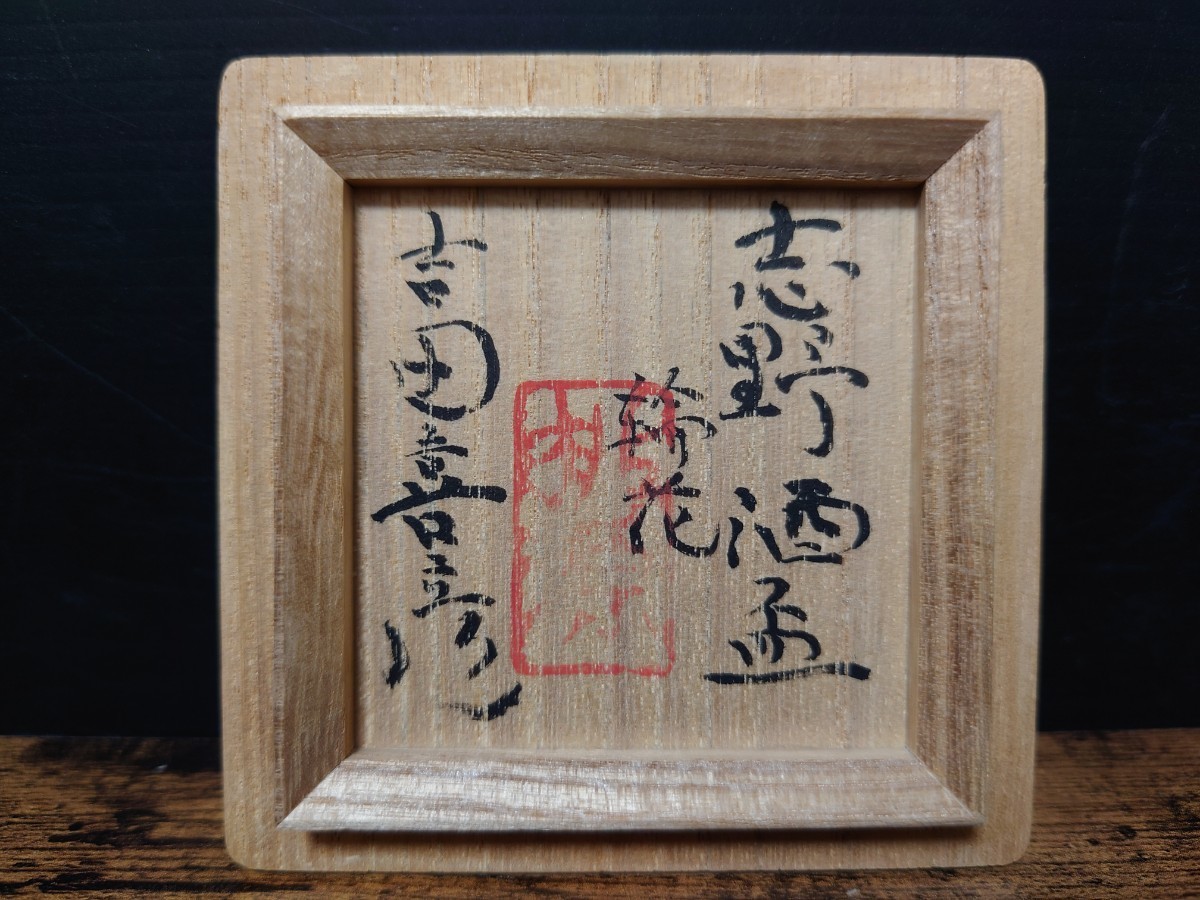 志野酒盃
輪花
吉田喜彦